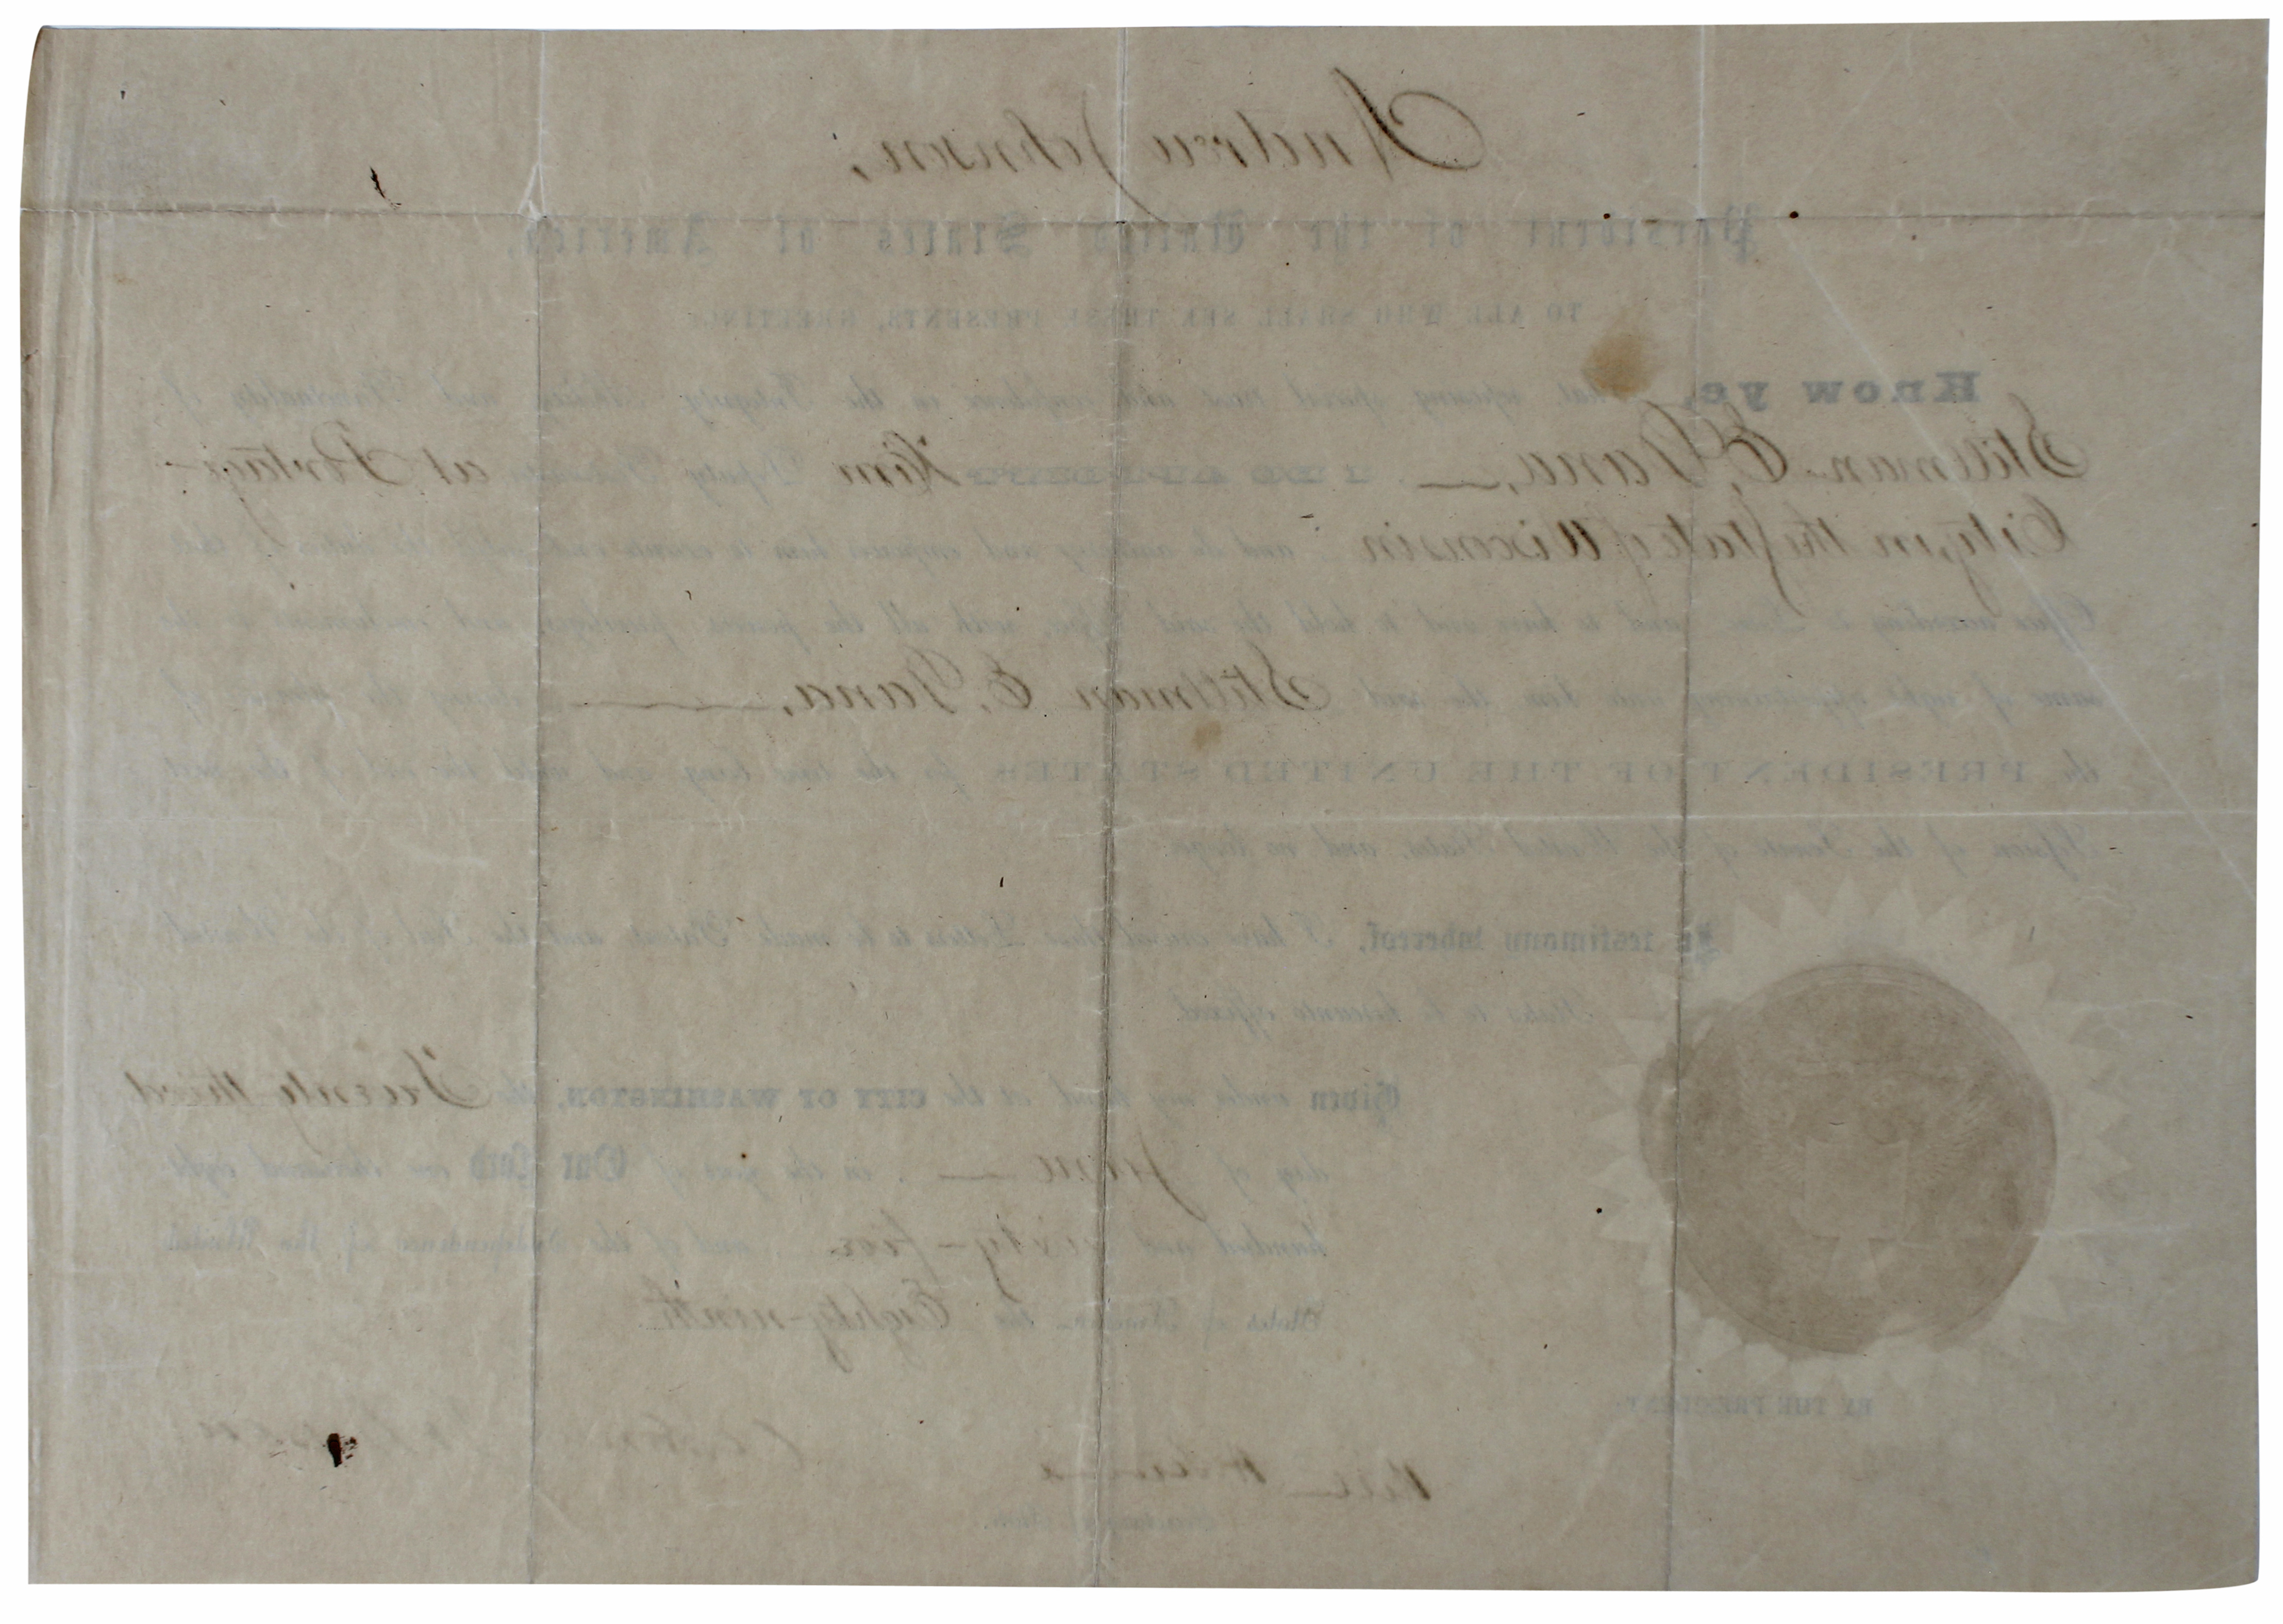 Andrew Johnson,
President of the United States of America,
TO ALL WHO SHALL SEE THESE PRESENTS, GREETING:
Know ye, that reposing special trust and confidence in the Integrity, and of
Stillman E. Dana, I DO APPOINT him Deputy at Portage
City, in the State of Wisconsin and do authorize and empower him to execute and fulfil the duties of that
Office according to Law, and to have and to hold the said Office, with all the powers, privileges, and emoluments to the
same of right appertaining unto him the said Stillman E. Dana, during the pleasure of
the PRESIDENT OF THE UNITED STATES for the time being, and until the end of the next
Session of the Senate of the United States, and no longer.
In testimony whereof, I have caused these Letters to be made Patent and the Seal of the United
States to be hereunto affixed.
Given under my hand at the CITY OF WASHINGTON, the Twenty third
day of June in the year of Our Lord one thousand eight
hundred and sixty-five and of the Independence of the United
States of America the Eighty-ninth.
BY THE PRESIDENT:
Andrew Johnson